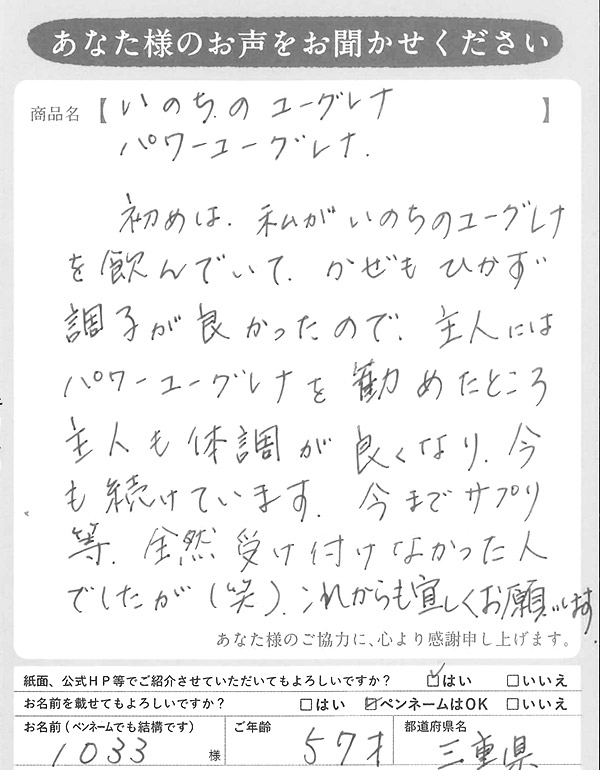 あなた様のお声をお聞かせください
商品名 【いのちのユーグレナ 】
パワーユーグレナ.
初めは、私がいのちのユーグレナ
を飲んでいて、かぜもひかず
調子が良かったので、主人には
パワーユーグレナを勧めたところ
主人も体調が良くなり、今
も続けています。今までサプリ
等、全然受け付けなかった人
でしたが(笑)、これからも宜しくお願いします。
あなた様のご協力に、心より感謝申し上げます。
紙面、公式HP等でご紹介させていただいてもよろしいですか? ☑はい □いいえ
お名前を載せてもよろしいですか? □はい ☑ペンネームはOK □いいえ
お名前(ペンネームでも結構です) ご年齢 都道府県名
1033 様 57才 三重県